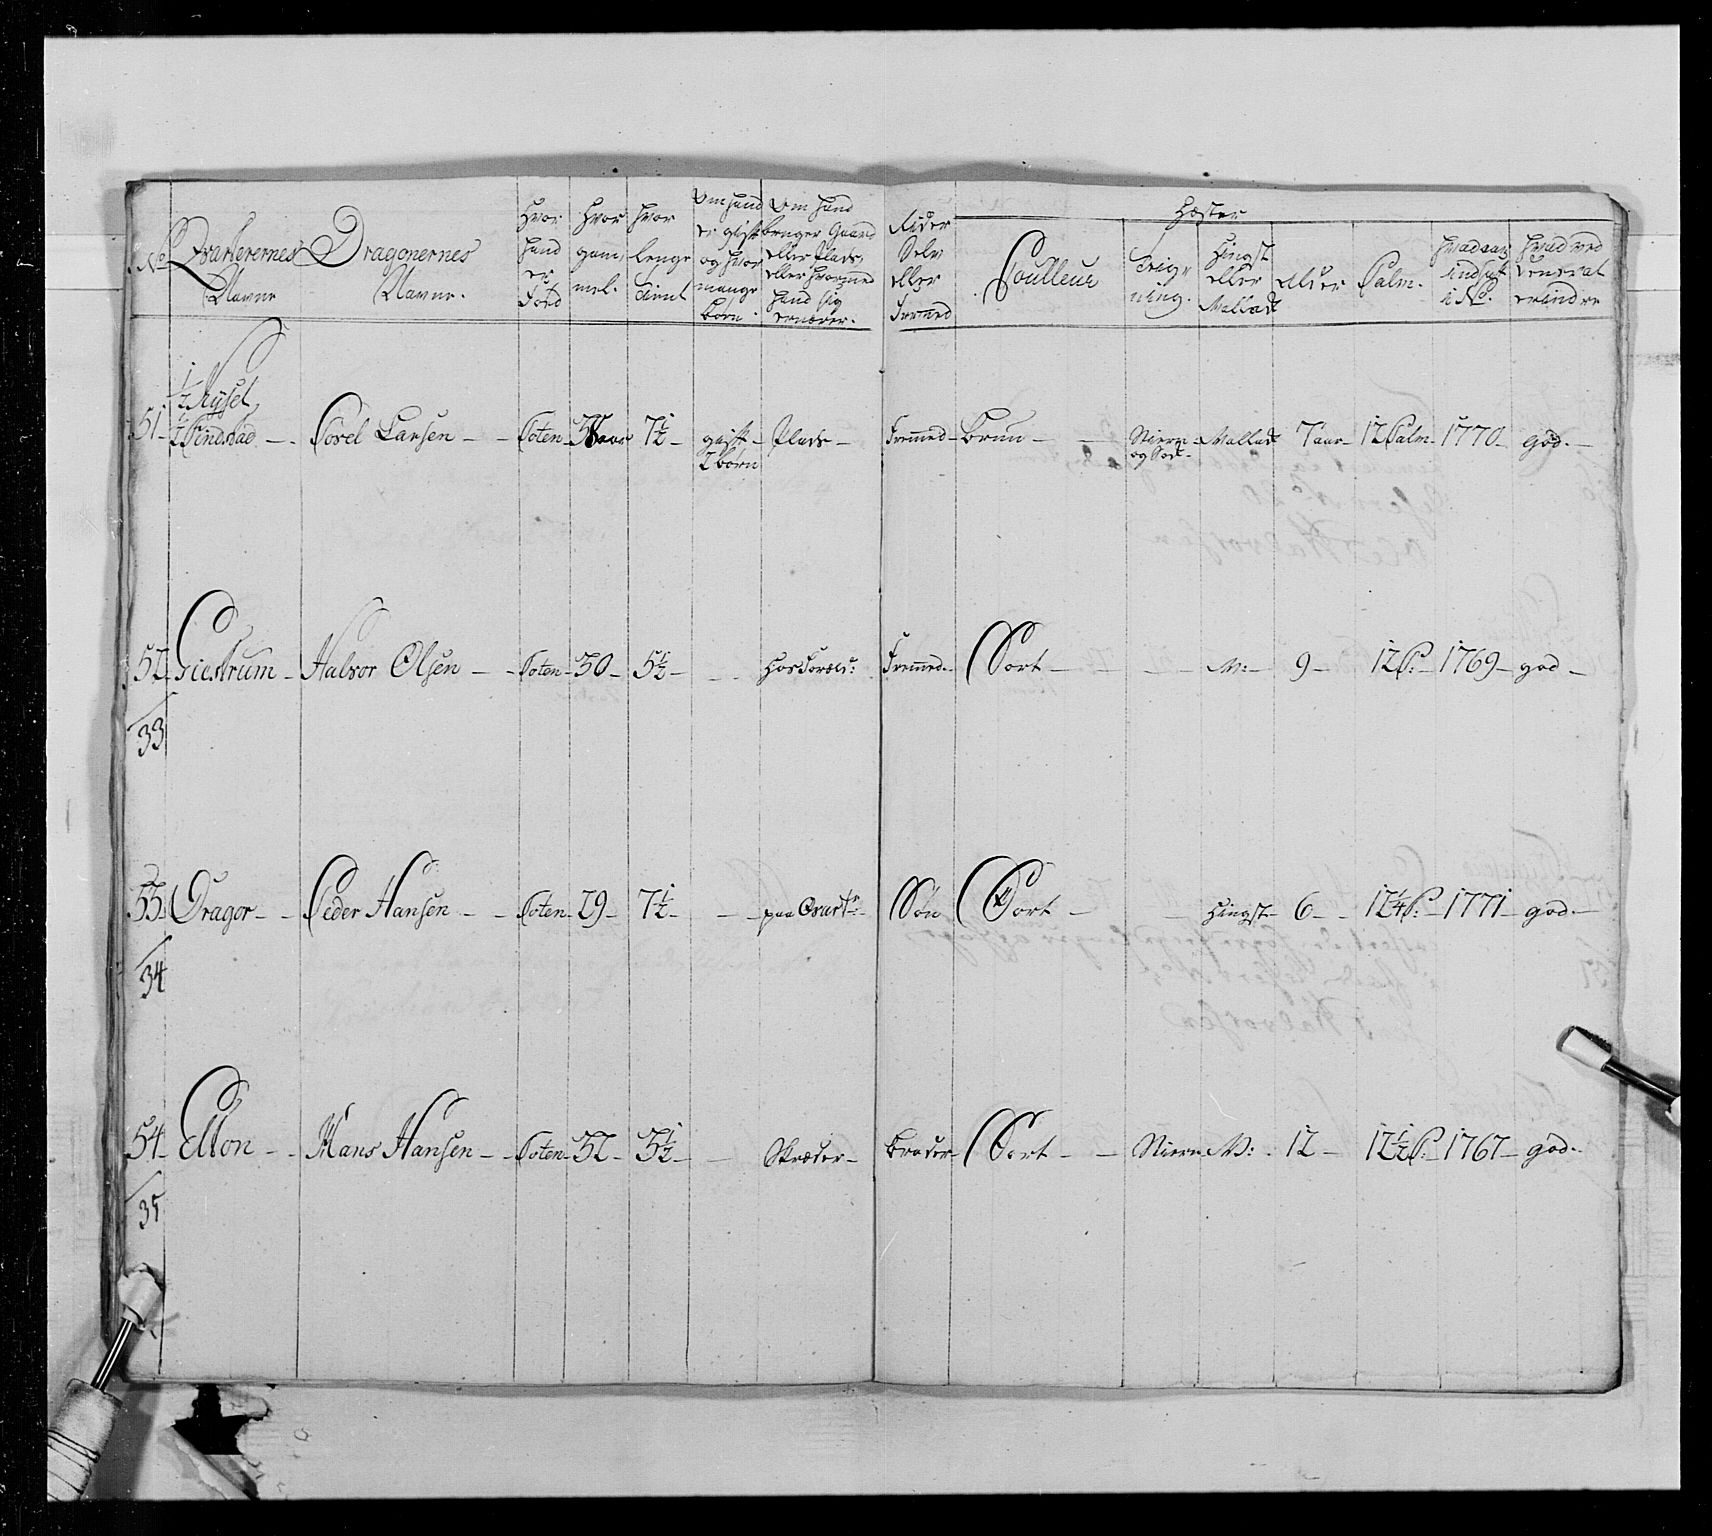 No Qvarterernes Navne
Dragonernes Navne.
Hvor hand er Fød
Hvor gam, mel.
hvor lenge tient
Om hand er gift og hvor mange børn.
Om hand bruger Gaard eller Plads, eller hvormed hand sig ernærer.
Rider Selv eller Fremed
Hæster
Coulleur
Teig, ning.
Hingst eller Mallach
Alder
Palm.
hvad aar indsat i No.
hvad ved General erindre
51 1/2 Rÿsel, 1/2 Findstad - Povel Larsen - Toten - aar 7 1/2 - gift 2 børn - Plads - Fremed - Brun - Stiern og Sok - Mallach 7 aar - 12 Palm - 1770 - god. -
52 Giestrum - Halvor Olsen - Toten - 30 - 5 1/2 - hos Foræld: Fremed - Sort - M: - 9 - 12 P: - 1769 - god -
33
53 Dragor - Peder Hansen - Toten - 29 - 7 1/2 - paa Qvart: Søn Sort - Hingst - 6 - 12 1/4 P: - 1771 - god -
34
54 Elton - Hans Hansen - Toten - 32 - 5 1/2 - Skræder - Broder - Sort - Stiern M: 12 - 12 1/2 P: - 1767 - god -
35